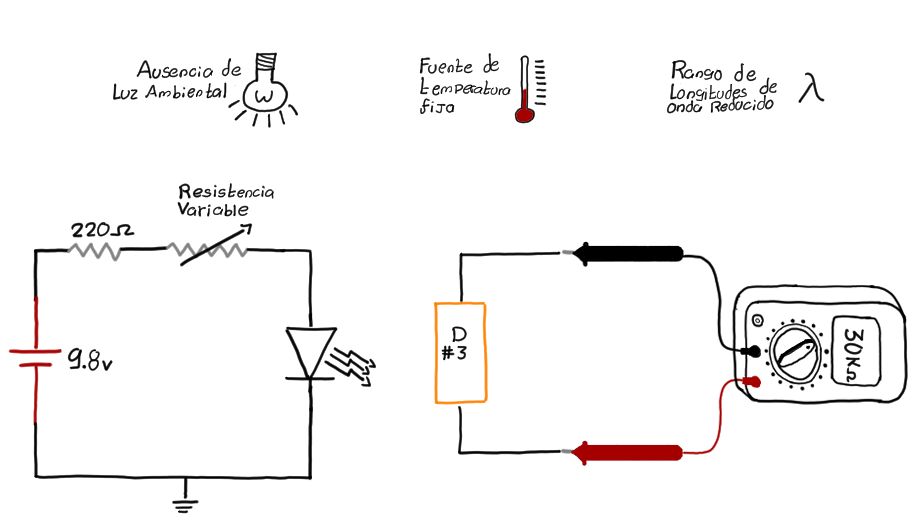 Ausencia de
Luz Ambiental
Fuente de
temperatura
fija
Rango de
Longitudes de
onda Reducido
λ
Resistencia
Variable
220Ω
9.8v
D
#3
30KΩ